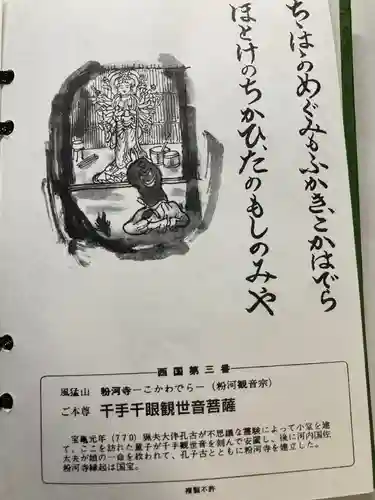 ちちはゝのめぐみもふかき、こかはでら
ほとけのちかひ、たのもしのみや
西国第三番
風猛山 粉河寺ーこかわでらー(粉河観音宗)
ご本尊 千手千眼観世音菩薩
宝亀元年(770)猟夫大泮孔古が不思議な霊験によって小堂を建
て、ここを訪れた童子が千手観世音を刻んで安置し、後に河内国佐
太夫が娘の一命を救われて、孔子古とともに粉河寺を建立した。
粉河寺縁起は国宝。
複製不許